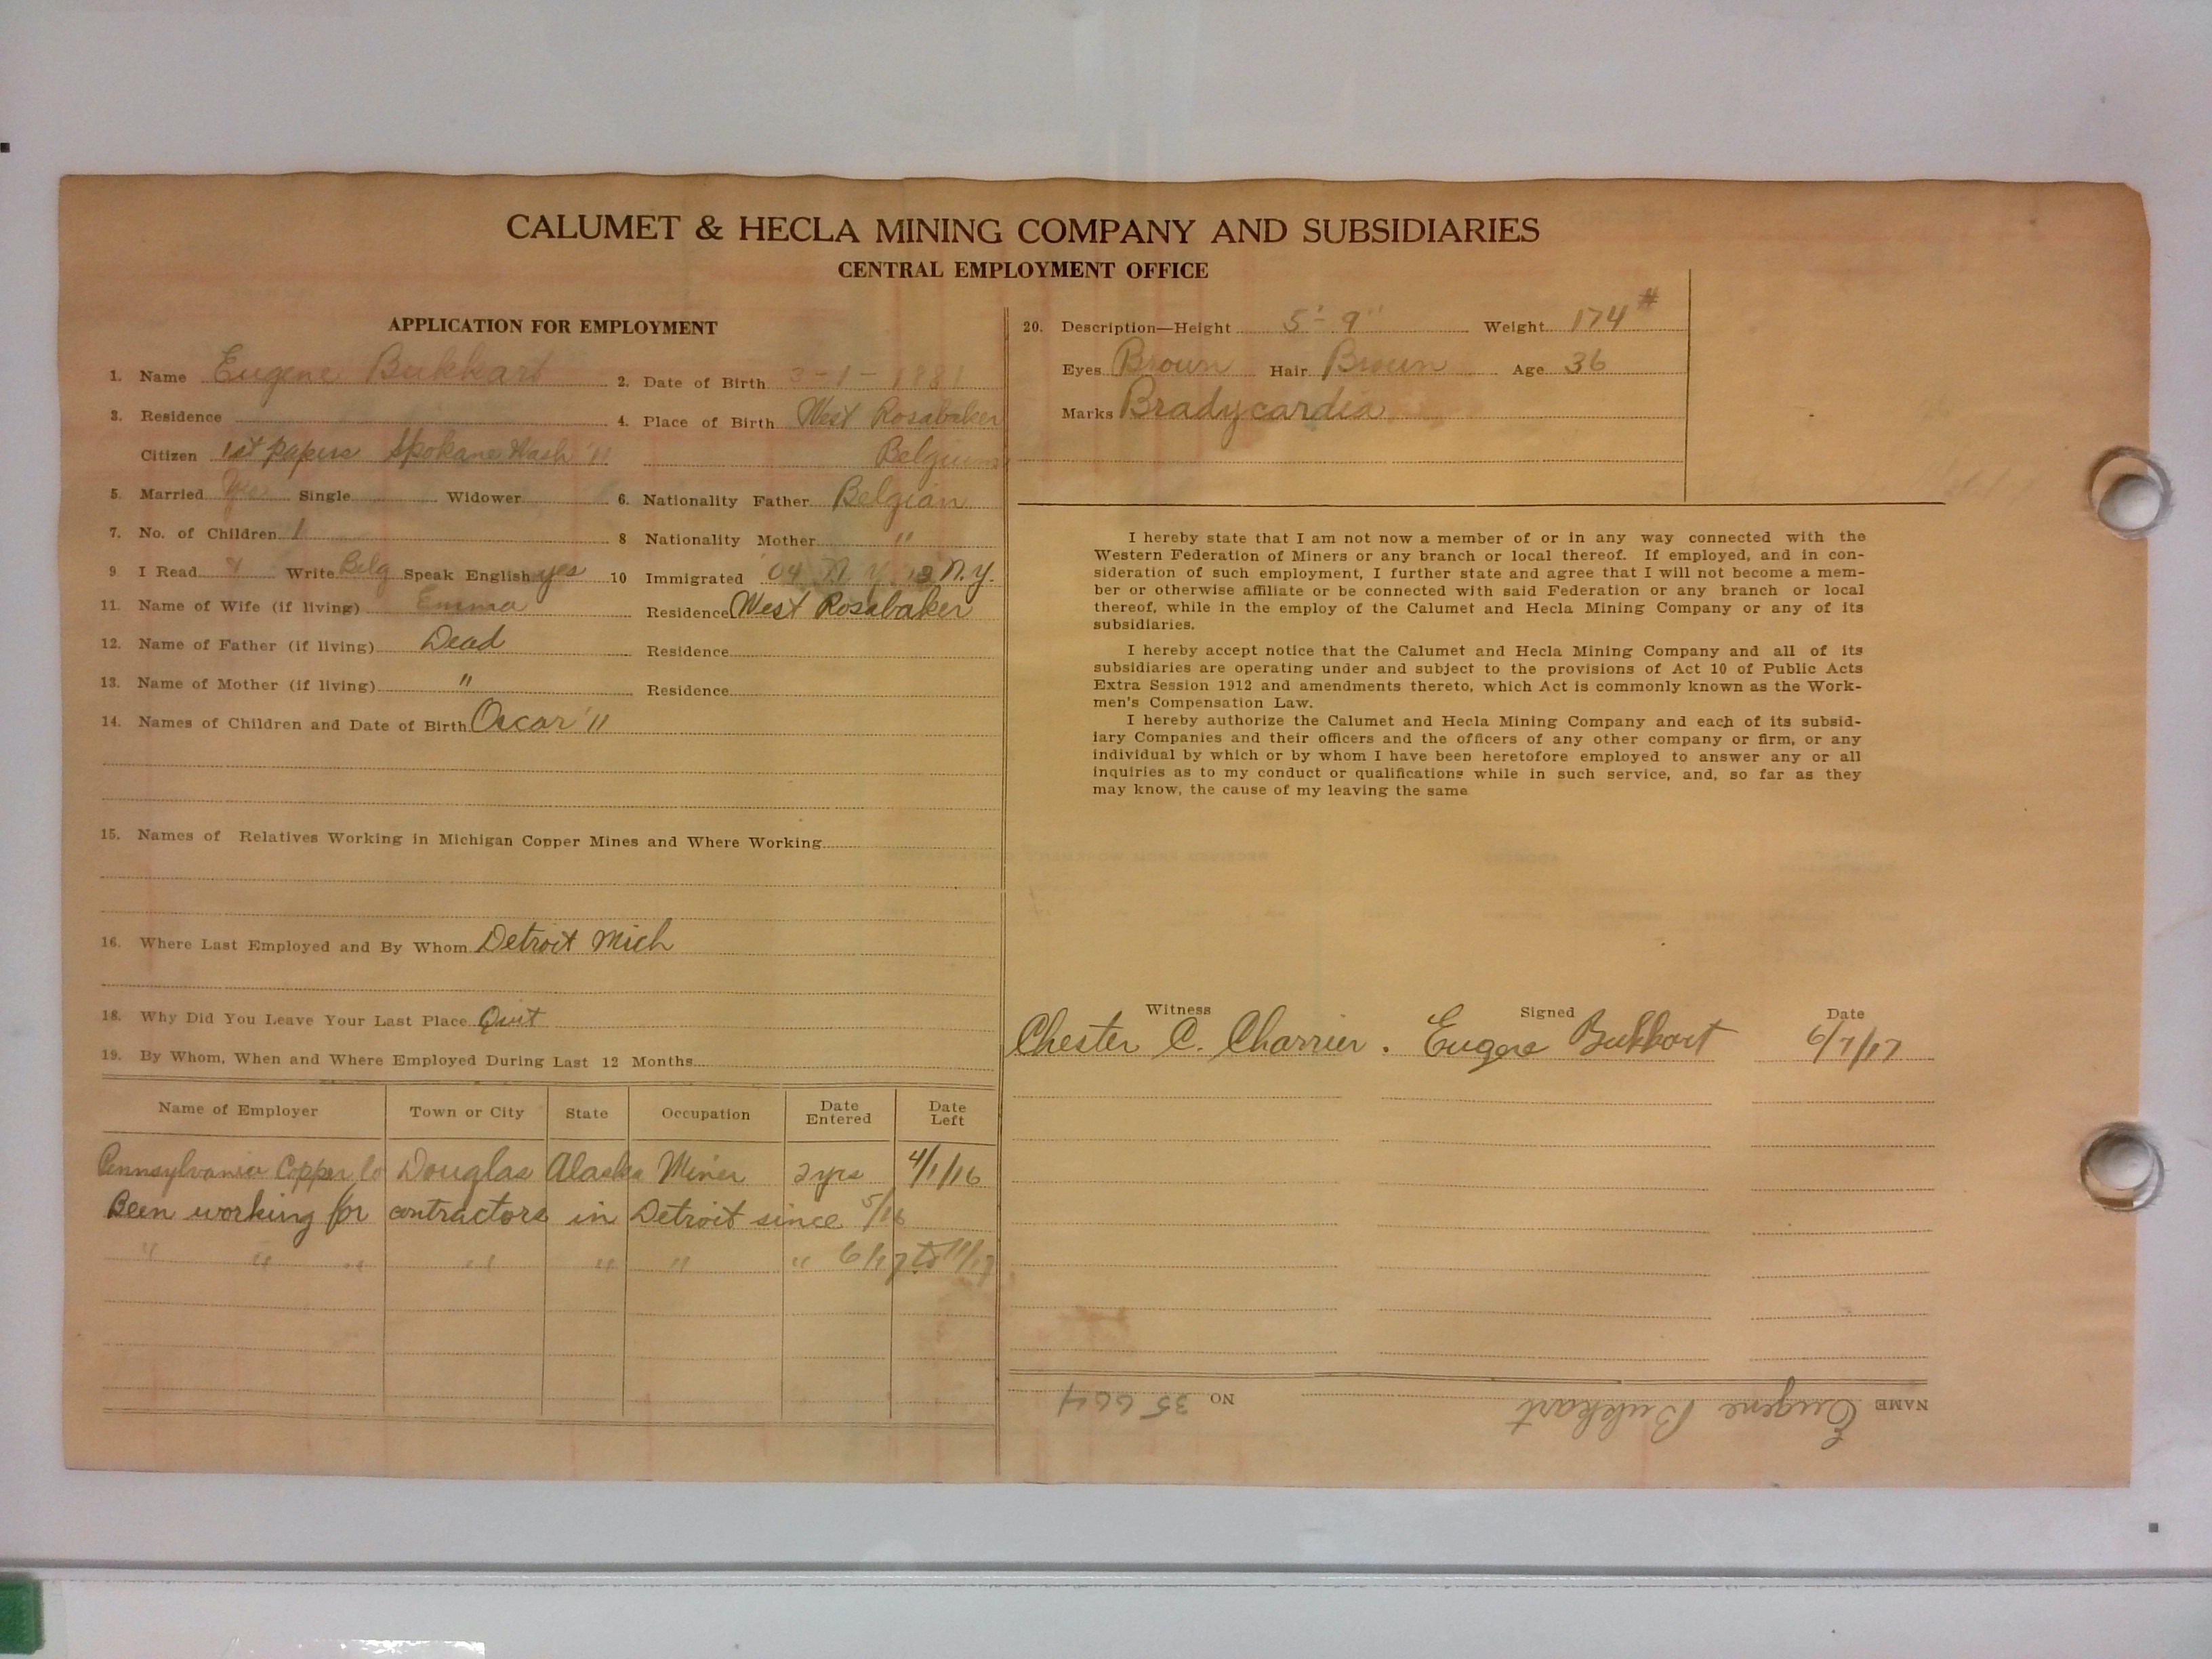 CALUMET & HECLA MINING COMPANY AND SUBSIDIARIES
CENTRAL EMPLOYMENT OFFICE
APPLICATION FOR EMPLOYMENT
1. Name Eugene Bukkart 2. Date of Birth 3-1-1881
3. Residence 4. Place of Birth West Rosabaker
Citizen 1st papers Spokane Wash '11 Belgium
5. Married Yes Single Widower 6. Nationality Father Belgian
7. No. of Children 1 8 Nationality Mother "
9 I Read Write Belg Speak English yes 10 Immigrated '04 N.Y. N.Y.
11. Name of Wife (if living) Emma Residence West Rosabaker
12. Name of Father (if living) Dead Residence
13. Name of Mother (if living) " Residence
14. Names of Children and Date of Birth Oscar '11
15. Names of Relatives Working in Michigan Copper Mines and Where Working
16. Where Last Employed and By Whom Detroit Mich
18. Why Did You Leave Your Last Place Quit
19. By Whom, When and Where Employed During Last 12 Months
Name of Employer Town or City State Occupation Date Entered Date Left
Pennsylvania Copper Co Douglas Alaska Miner 2 yrs 4/1/16
Been working for contractors in Detroit since 5/16
" " " " " " " 6/17 to 11/17
20. Description—Height 5'-9" Weight 174#
Eyes Brown Hair Brown Age 36
Marks Bradycardia
I hereby state that I am not now a member of or in any way connected with the
Western Federation of Miners or any branch or local thereof. If employed, and in con-
sideration of such employment, I further state and agree that I will not become a mem-
ber or otherwise affiliate or be connected with said Federation or any branch or local
thereof, while in the employ of the Calumet and Hecla Mining Company or any of its
subsidiaries.
I hereby accept notice that the Calumet and Hecla Mining Company and all of its
subsidiaries are operating under and subject to the provisions of Act 10 of Public Acts
Extra Session 1912 and amendments thereto, which Act is commonly known as the Work-
men's Compensation Law.
I hereby authorize the Calumet and Hecla Mining Company and each of its subsid-
iary Companies and their officers and the officers of any other company or firm, or any
individual by which or by whom I have been heretofore employed to answer any or all
inquiries as to my conduct or qualifications while in such service, and, so far as they
may know, the cause of my leaving the same
Witness Signed Date
Chester C. Charrier. Eugene Bukkart 6/7/17
NAME Eugene Bukkart NO 35664